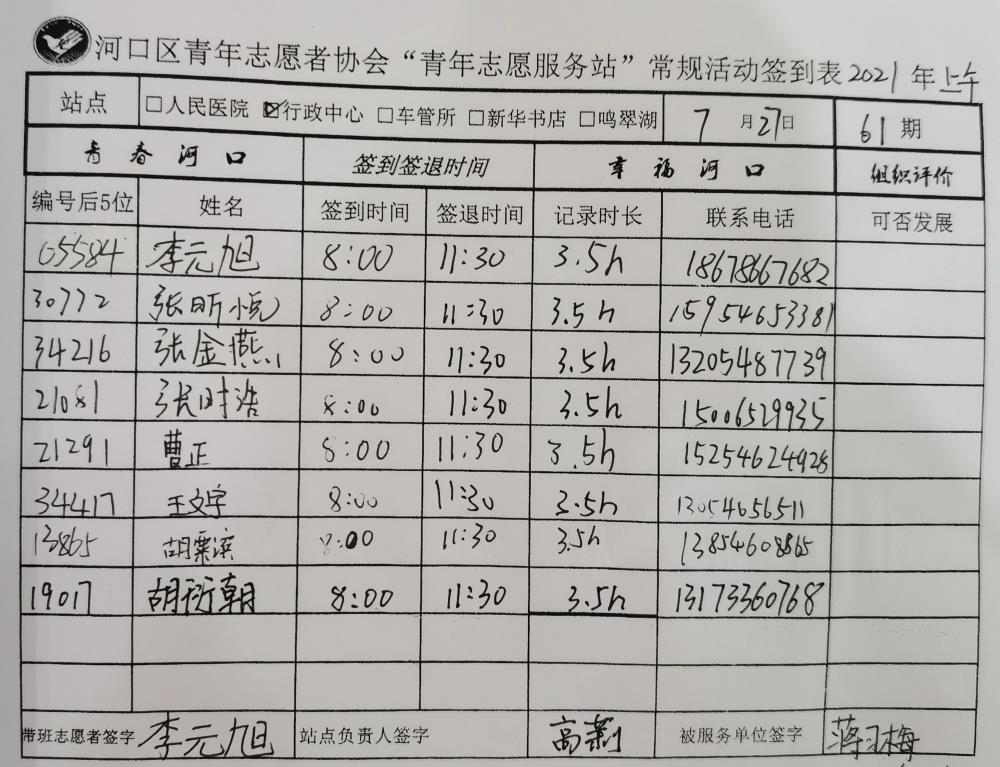 河口区青年志愿者协会“青年志愿服务站”常规活动签到表2021年上午
站点 □人民医院 ☑行政中心 □车管所 □新华书店 □鸣翠湖 7月27日 61期
青春河口 签到签退时间 幸福河口 组织评价
编号后5位 姓名 签到时间 签退时间 记录时长 联系电话 可否发展
05584 李元旭 8:00 11:30 3.5h 18678667682
30772 张昕悦 8:00 11:30 3.5h 15954653381
34216 张金燕 8:00 11:30 3.5h 13205487739
21081 张时浩 8:00 11:30 3.5h 15006529935
21291 曹正 8:00 11:30 3.5h 15254624928
34417 王文宇 8:00 11:30 3.5h 13054656511
13865 胡粟滨 8:00 11:30 3.5h 13854608865
19017 胡衍朝 8:00 11:30 3.5h 13173360768
带班志愿者签字 李元旭 站点负责人签字 高 被服务单位签字 蒋 梅